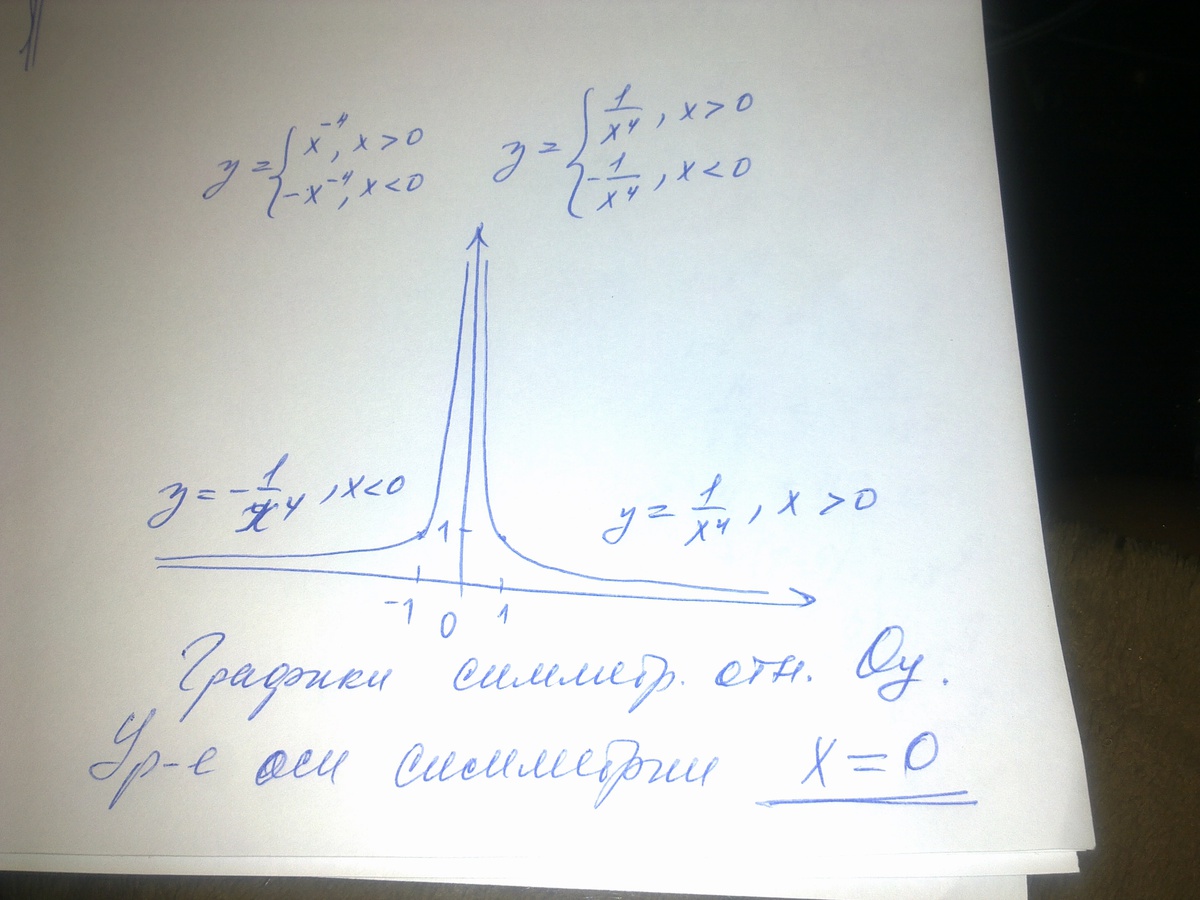 y = { x⁻⁴, x > 0
-x⁻⁴, x < 0
y = { 1/x⁴, x > 0
-1/x⁴, x < 0
y = -1/x⁴, x<0
y = 1/x⁴, x > 0
1
-1 0 1
Графики симметр. отн. Oy.
Ур-е оси симметрии x = 0